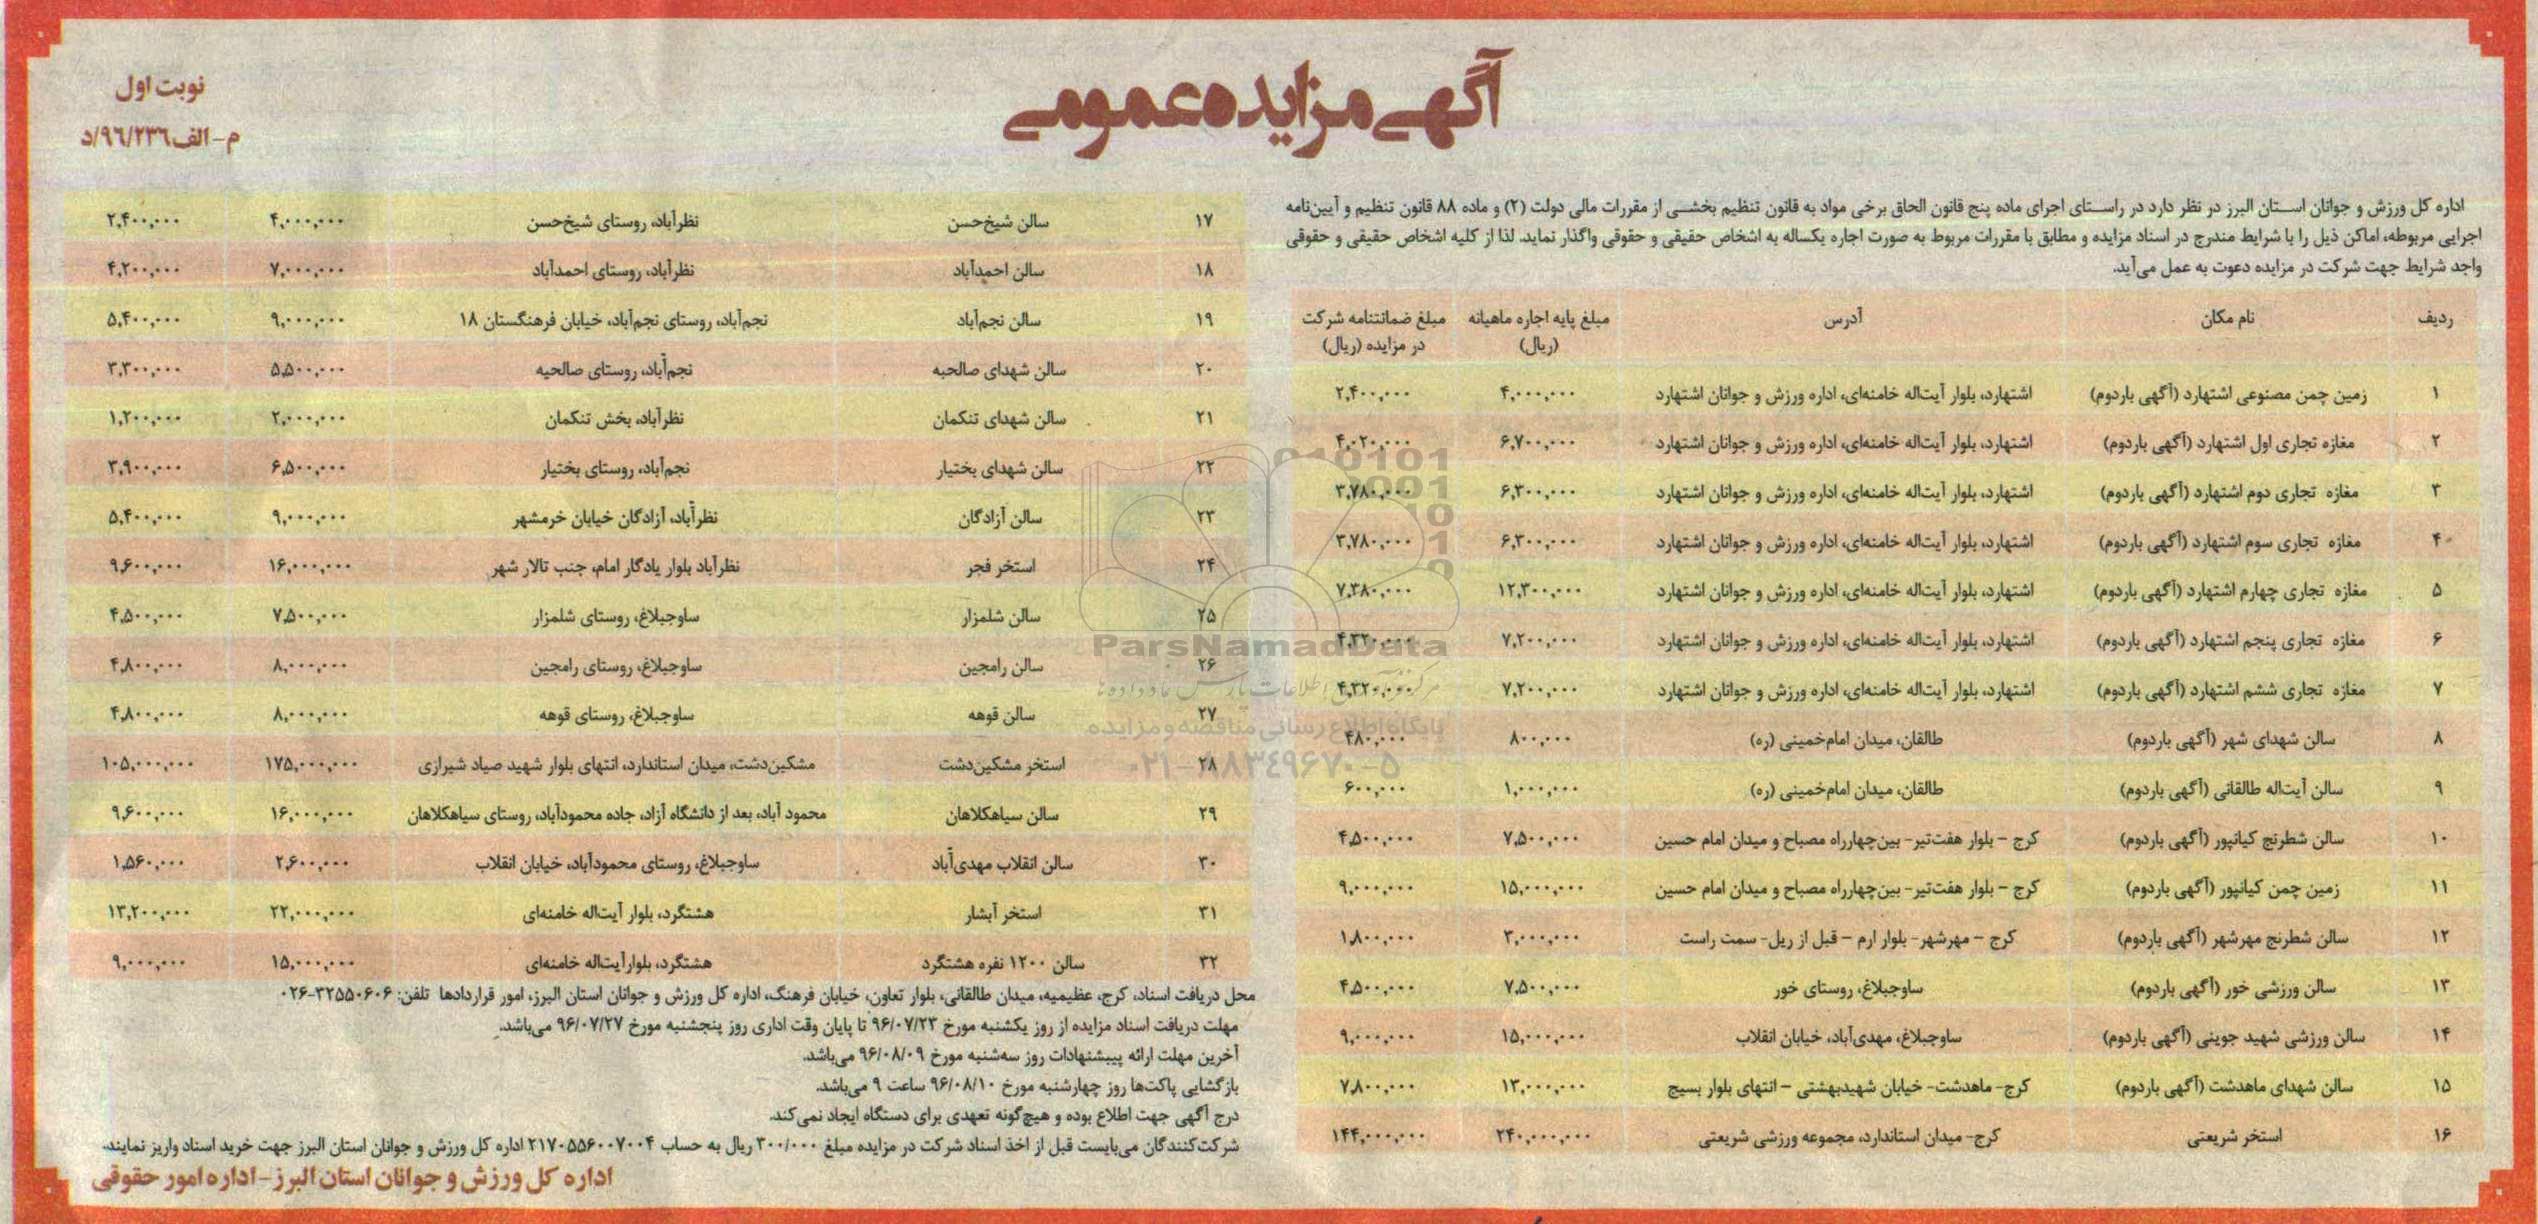 آگهی مزایده عمومی
نوبت اول
م-الف ۹۶/۲۳۶/د
اداره کل ورزش و جوانان استان البرز در نظر دارد در راستای اجرای ماده پنج قانون الحاق برخی مواد به قانون تنظیم بخشی از مقررات مالی دولت (۲) و ماده ۸۸ قانون تنظیم و آیین‌نامه
اجرایی مربوطه، اماکن ذیل را با شرایط مندرج در اسناد مزایده و مطابق با مقررات مربوط به صورت اجاره یکساله به اشخاص حقیقی و حقوقی واگذار نماید. لذا از کلیه اشخاص حقیقی و حقوقی
واجد شرایط جهت شرکت در مزایده دعوت به عمل می‌آید.
ردیف نام مکان آدرس مبلغ پایه اجاره ماهیانه (ریال) مبلغ ضمانتنامه شرکت در مزایده (ریال)
۱ زمین چمن مصنوعی اشتهارد (آگهی باردوم) اشتهارد، بلوار آیت‌اله خامنه‌ای، اداره ورزش و جوانان اشتهارد ۴,۰۰۰,۰۰۰ ۲,۴۰۰,۰۰۰
۲ مغازه تجاری اول اشتهارد (آگهی باردوم) اشتهارد، بلوار آیت‌اله خامنه‌ای، اداره ورزش و جوانان اشتهارد ۶,۷۰۰,۰۰۰ ۴,۰۲۰,۰۰۰
۳ مغازه تجاری دوم اشتهارد (آگهی باردوم) اشتهارد، بلوار آیت‌اله خامنه‌ای، اداره ورزش و جوانان اشتهارد ۶,۳۰۰,۰۰۰ ۳,۷۸۰,۰۰۰
۴ مغازه تجاری سوم اشتهارد (آگهی باردوم) اشتهارد، بلوار آیت‌اله خامنه‌ای، اداره ورزش و جوانان اشتهارد ۶,۳۰۰,۰۰۰ ۳,۷۸۰,۰۰۰
۵ مغازه تجاری چهارم اشتهارد (آگهی باردوم) اشتهارد، بلوار آیت‌اله خامنه‌ای، اداره ورزش و جوانان اشتهارد ۱۲,۳۰۰,۰۰۰ ۷,۳۸۰,۰۰۰
۶ مغازه تجاری پنجم اشتهارد (آگهی باردوم) اشتهارد، بلوار آیت‌اله خامنه‌ای، اداره ورزش و جوانان اشتهارد ۷,۲۰۰,۰۰۰ ۴,۳۲۰,۰۰۰
۷ مغازه تجاری ششم اشتهارد (آگهی باردوم) اشتهارد، بلوار آیت‌اله خامنه‌ای، اداره ورزش و جوانان اشتهارد ۷,۲۰۰,۰۰۰ ۴,۳۲۰,۰۰۰
۸ سالن شهدای شهر (آگهی باردوم) طالقان، میدان امام‌خمینی (ره) ۸۰۰,۰۰۰ ۴۸۰,۰۰۰
۹ سالن آیت‌اله طالقانی (آگهی باردوم) طالقان، میدان امام‌خمینی (ره) ۱,۰۰۰,۰۰۰ ۶۰۰,۰۰۰
۱۰ سالن شطرنج کیانپور (آگهی باردوم) کرج – بلوار هفت‌تیر- بین‌چهارراه مصباح و میدان امام حسین ۷,۵۰۰,۰۰۰ ۴,۵۰۰,۰۰۰
۱۱ زمین چمن کیانپور (آگهی باردوم) کرج – بلوار هفت‌تیر- بین‌چهارراه مصباح و میدان امام حسین ۱۵,۰۰۰,۰۰۰ ۹,۰۰۰,۰۰۰
۱۲ سالن شطرنج مهرشهر (آگهی باردوم) کرج – مهرشهر- بلوار ارم – قبل از ریل- سمت راست ۳,۰۰۰,۰۰۰ ۱,۸۰۰,۰۰۰
۱۳ سالن ورزشی خور (آگهی باردوم) ساوجبلاغ، روستای خور ۷,۵۰۰,۰۰۰ ۴,۵۰۰,۰۰۰
۱۴ سالن ورزشی شهید جوینی (آگهی باردوم) ساوجبلاغ، مهدی‌آباد، خیابان انقلاب ۱۵,۰۰۰,۰۰۰ ۹,۰۰۰,۰۰۰
۱۵ سالن شهدای ماهدشت (آگهی باردوم) کرج- ماهدشت- خیابان شهیدبهشتی – انتهای بلوار بسیج ۱۳,۰۰۰,۰۰۰ ۷,۸۰۰,۰۰۰
۱۶ استخر شریعتی کرج- میدان استاندارد، مجموعه ورزشی شریعتی ۲۴۰,۰۰۰,۰۰۰ ۱۴۴,۰۰۰,۰۰۰
۱۷ سالن شیخ‌حسن نظرآباد، روستای شیخ‌حسن ۴,۰۰۰,۰۰۰ ۲,۴۰۰,۰۰۰
۱۸ سالن احمدآباد نظرآباد، روستای احمدآباد ۷,۰۰۰,۰۰۰ ۴,۲۰۰,۰۰۰
۱۹ سالن نجم‌آباد نجم‌آباد، روستای نجم‌آباد، خیابان فرهنگستان ۱۸ ۹,۰۰۰,۰۰۰ ۵,۴۰۰,۰۰۰
۲۰ سالن شهدای صالحیه نجم‌آباد، روستای صالحیه ۵,۵۰۰,۰۰۰ ۳,۳۰۰,۰۰۰
۲۱ سالن شهدای تنکمان نظرآباد، بخش تنکمان ۲,۰۰۰,۰۰۰ ۱,۲۰۰,۰۰۰
۲۲ سالن شهدای بختیار نجم‌آباد، روستای بختیار ۶,۵۰۰,۰۰۰ ۳,۹۰۰,۰۰۰
۲۳ سالن آزادگان نظرآباد، آزادگان خیابان خرمشهر ۹,۰۰۰,۰۰۰ ۵,۴۰۰,۰۰۰
۲۴ استخر فجر نظرآباد بلوار یادگار امام، جنب تالار شهر ۱۶,۰۰۰,۰۰۰ ۹,۶۰۰,۰۰۰
۲۵ سالن شلمزار ساوجبلاغ، روستای شلمزار ۷,۵۰۰,۰۰۰ ۴,۵۰۰,۰۰۰
۲۶ سالن رامجین ساوجبلاغ، روستای رامجین ۸,۰۰۰,۰۰۰ ۴,۸۰۰,۰۰۰
۲۷ سالن قوهه ساوجبلاغ، روستای قوهه ۸,۰۰۰,۰۰۰ ۴,۸۰۰,۰۰۰
۲۸ استخر مشکین‌دشت مشکین‌دشت، میدان استاندارد، انتهای بلوار شهید صیاد شیرازی ۱۷۵,۰۰۰,۰۰۰ ۱۰۵,۰۰۰,۰۰۰
۲۹ سالن سیاهکلاهان محمود آباد، بعد از دانشگاه آزاد، جاده محمودآباد، روستای سیاهکلاهان ۱۶,۰۰۰,۰۰۰ ۹,۶۰۰,۰۰۰
۳۰ سالن انقلاب مهدی‌آباد ساوجبلاغ، روستای محمودآباد، خیابان انقلاب ۲,۶۰۰,۰۰۰ ۱,۵۶۰,۰۰۰
۳۱ استخر آبشار هشتگرد، بلوار آیت‌اله خامنه‌ای ۲۲,۰۰۰,۰۰۰ ۱۳,۲۰۰,۰۰۰
۳۲ سالن ۱۲۰۰ نفره هشتگرد هشتگرد، بلوارآیت‌اله خامنه‌ای ۱۵,۰۰۰,۰۰۰ ۹,۰۰۰,۰۰۰
محل دریافت اسناد، کرج، عظیمیه، میدان طالقانی، بلوار تعاون، خیابان فرهنگ، اداره کل ورزش و جوانان استان البرز، امور قراردادها تلفن: ۳۲۵۵۰۶۰۶-۰۲۶
مهلت دریافت اسناد مزایده از روز یکشنبه مورخ ۹۶/۰۷/۲۳ تا پایان وقت اداری روز پنجشنبه مورخ ۹۶/۰۷/۲۷ می‌باشد.
آخرین مهلت ارائه پیشنهادات روز سه‌شنبه مورخ ۹۶/۰۸/۰۹ می‌باشد.
بازگشایی پاکت‌ها روز چهارشنبه مورخ ۹۶/۰۸/۱۰ ساعت ۹ می‌باشد.
درج آگهی جهت اطلاع بوده و هیچ‌گونه تعهدی برای دستگاه ایجاد نمی‌کند.
شرکت‌کنندگان می‌بایست قبل از اخذ اسناد شرکت در مزایده مبلغ ۳۰۰/۰۰۰ ریال به حساب ۲۱۷۰۵۵۶۰۰۷۰۰۴ اداره کل ورزش و جوانان استان البرز جهت خرید اسناد واریز نمایند.
اداره کل ورزش و جوانان استان البرز-اداره امور حقوقی
ParsNamadData
پایگاه اطلاع رسانی مناقصه و مزایده
۰۲۱-۸۸۳۴۹۶۷۰-۵